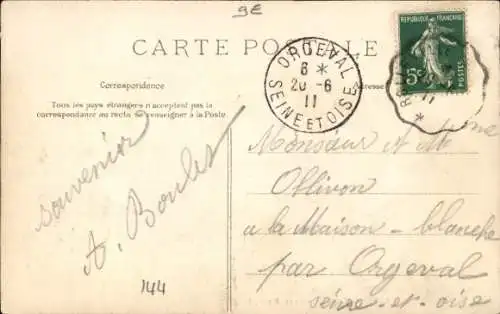 9E
CARTE POSTALE
Correspondance
Tous les pays étrangers n'acceptent pas la
correspondance au recto (se renseigner à la Poste.
souvenir
A. Boulet
144
ORGEVAL
6 *
20 -6
11
SEINE ET OISE
REPUBLIQUE FRANÇAISE
5c
POSTES
11
Adresse
Monsieur A Me
Ollivon
a la Maison - blanche
par Orgeval
seine-et-oise